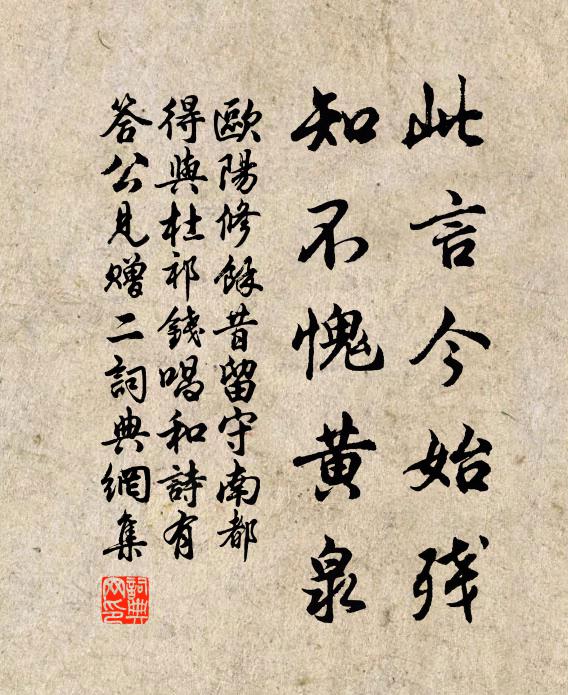 此言今始踐
知不愧黄泉
歐陽修餘昔留守南都
得與杜祁錢唱和詩有
答公見贈二詞典網集